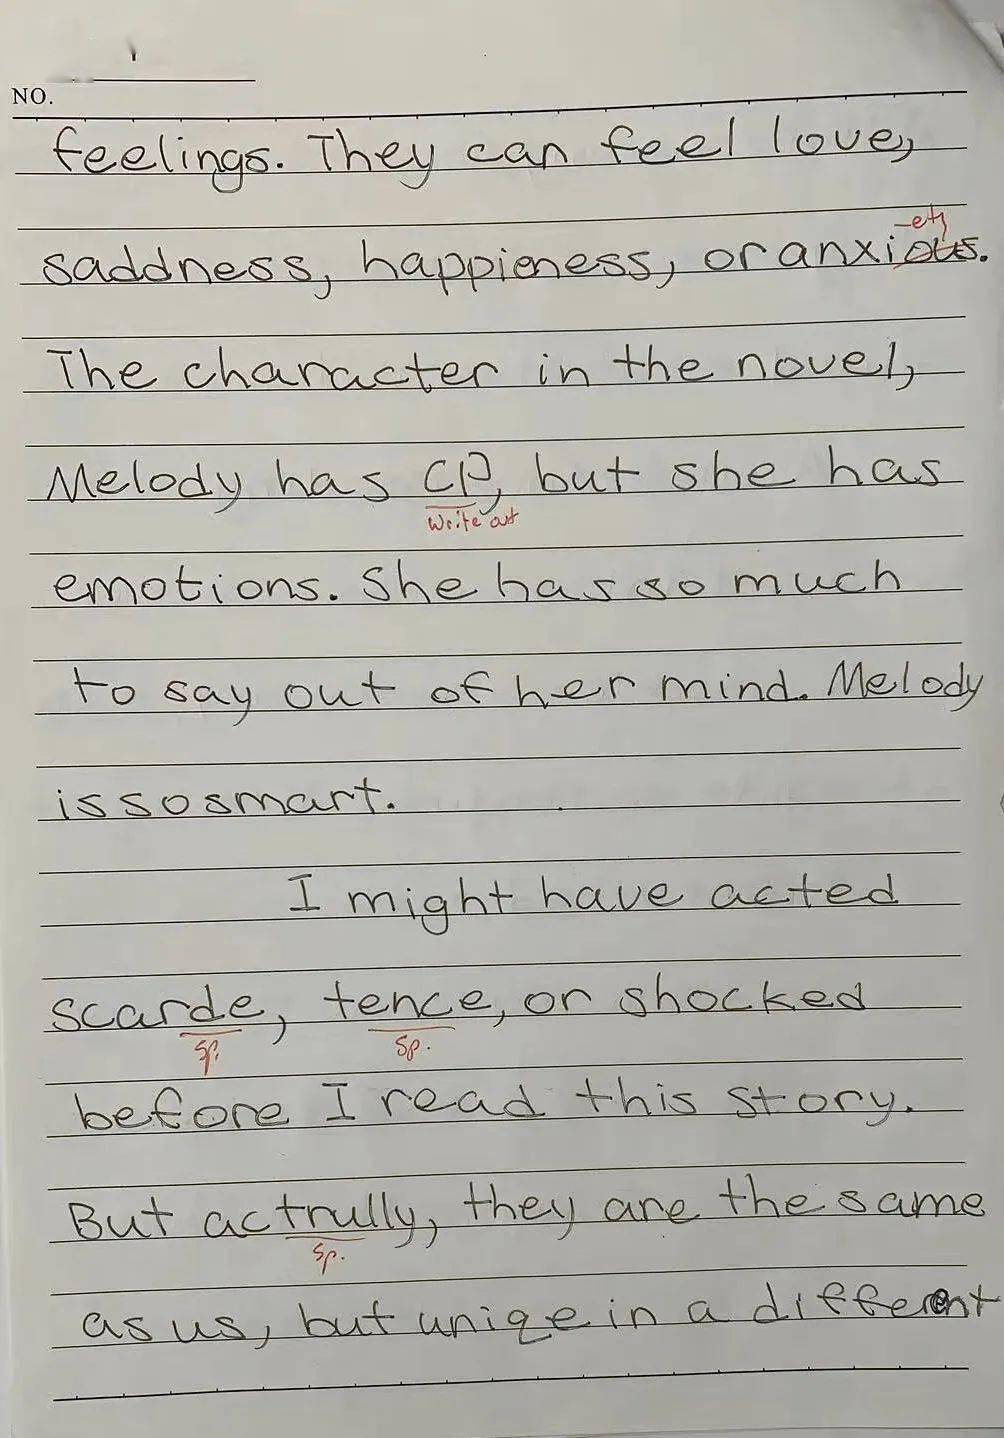 NO.
feelings. They can feel love,
-ety
saddness, happieness, or anxious.
The character in the novel,
Melody has CP, but she has
Write out
emotions. She has so much
to say out of her mind. Melody
is so smart.
I might have acted
scarde, tence, or shocked
sp. sp.
before I read this story.
But actrully, they are the same
sp.
as us, but uniqe in a different